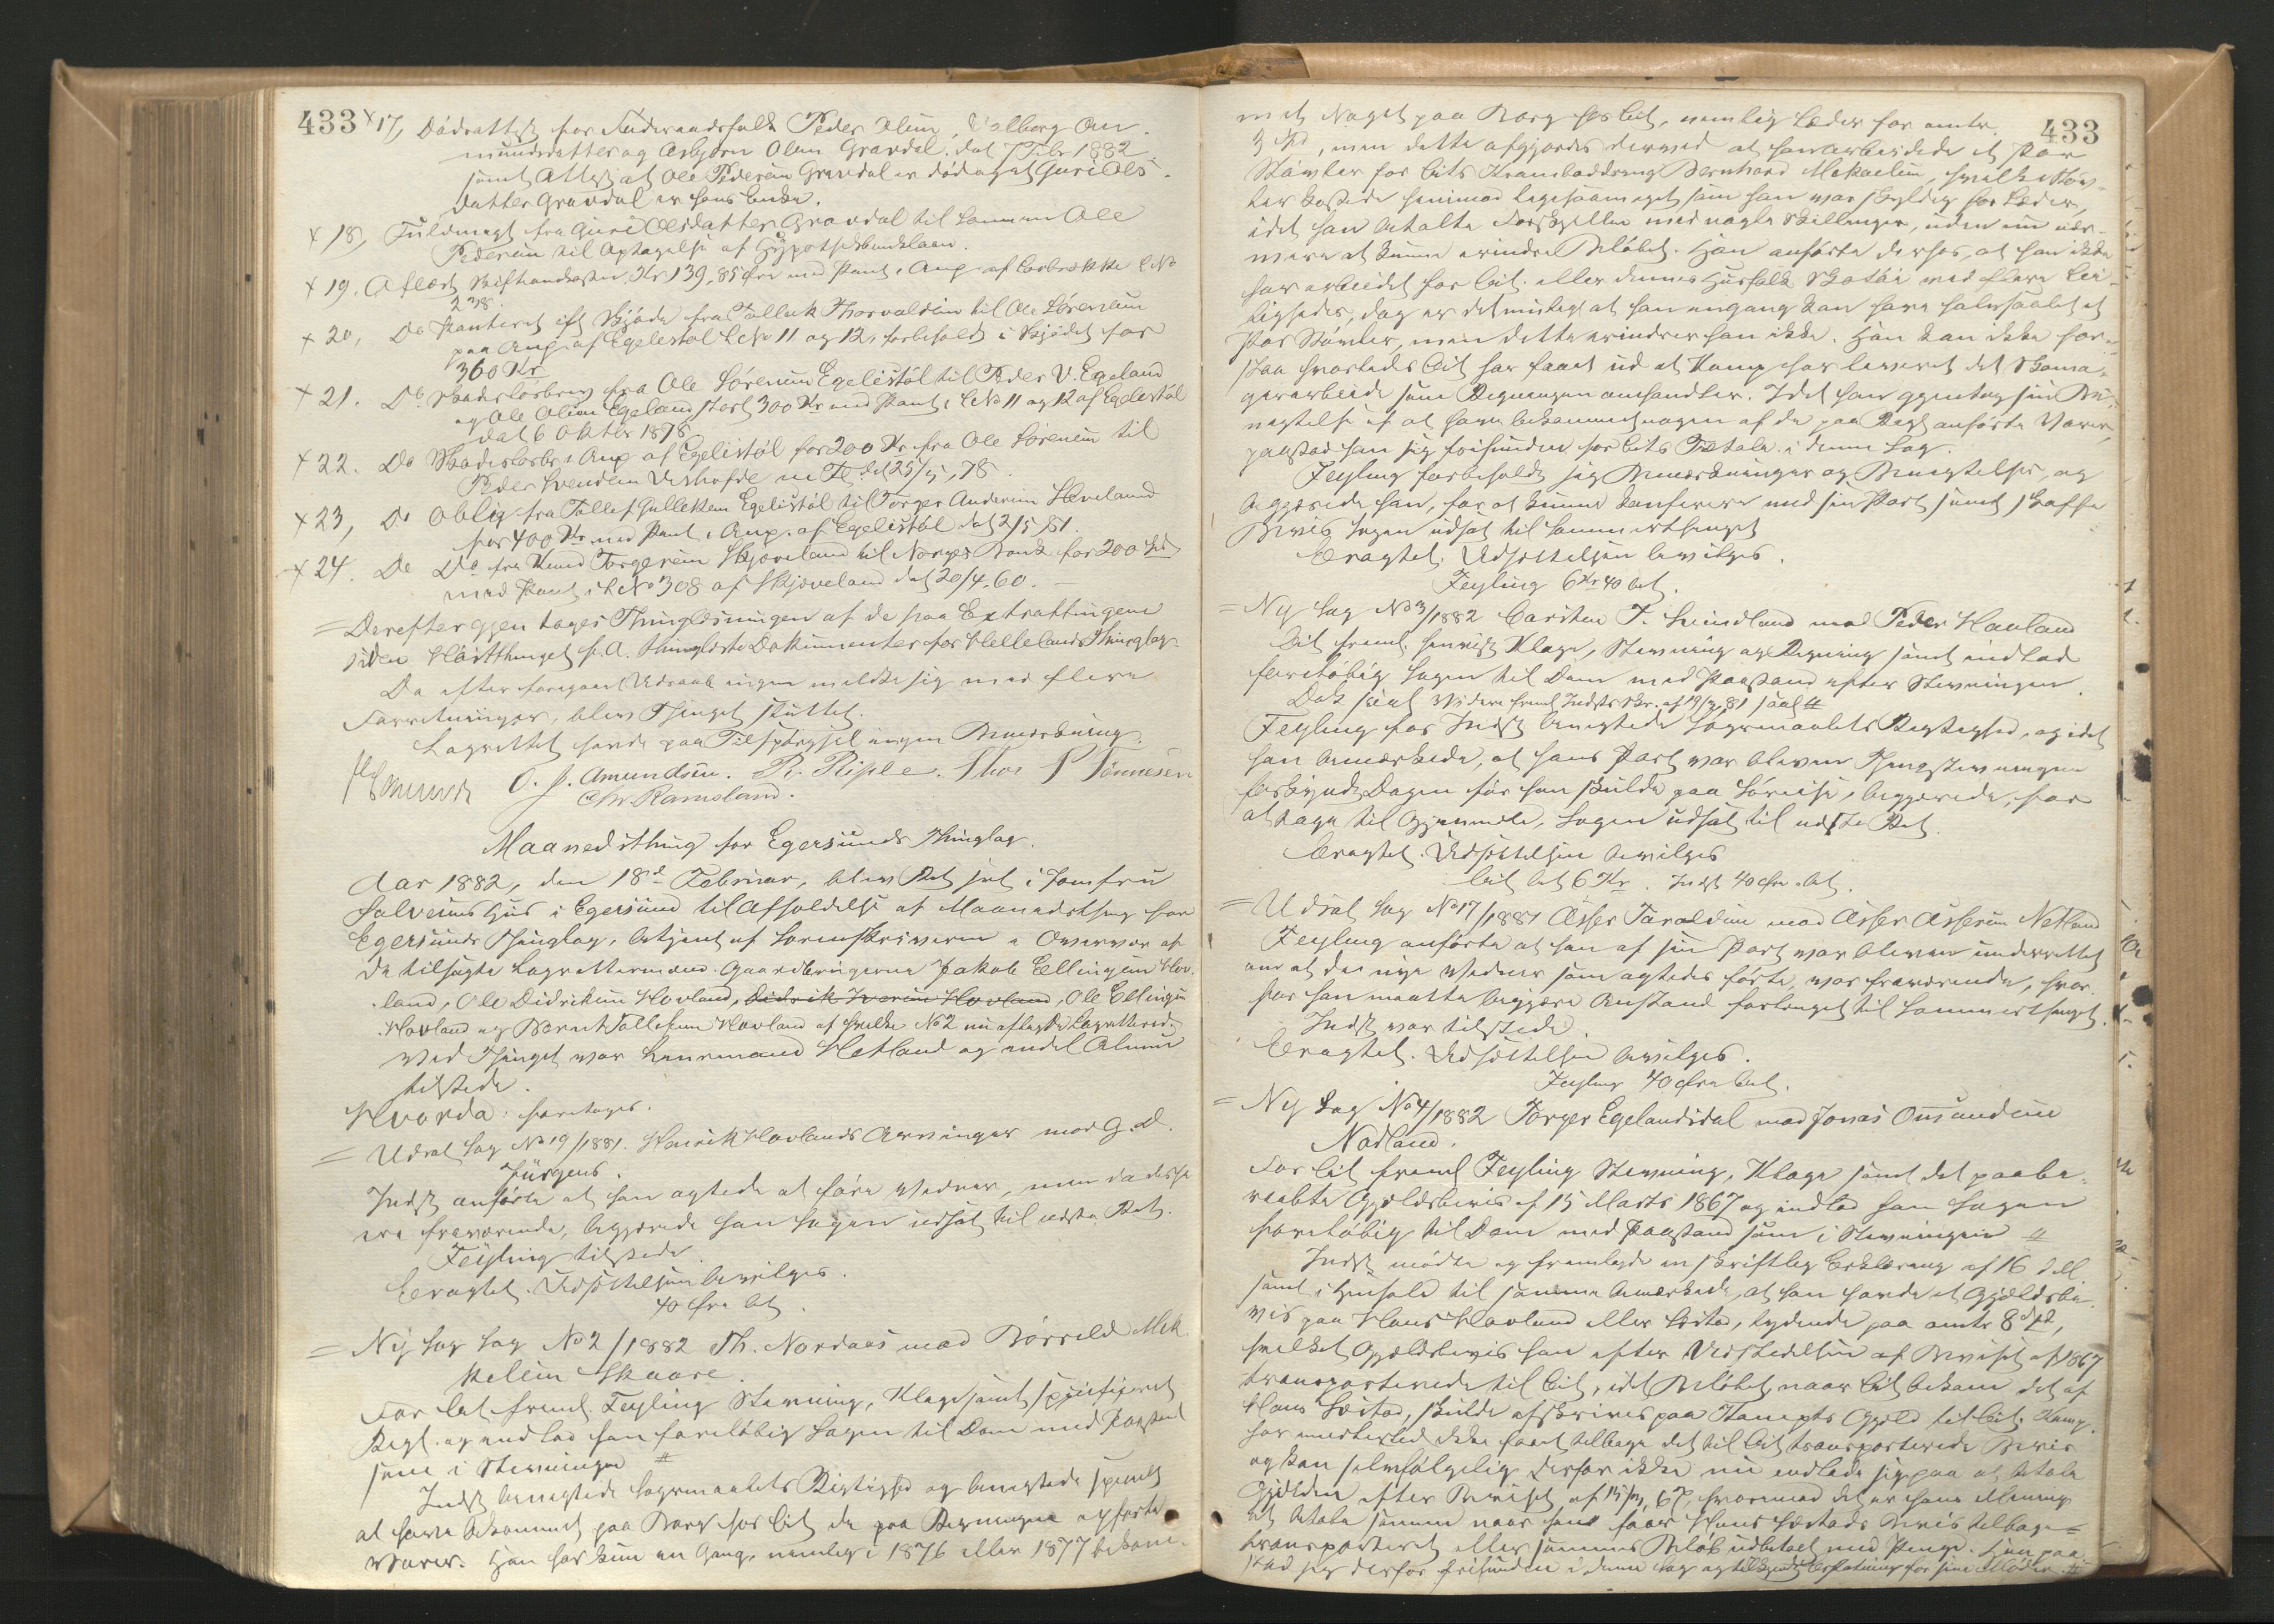 433
x 17, Dödsattest for Föderaadsfolk Peder Olsen, Valborg Am-
mundsdatter og Asbjørn Olsen Gravdal, dat 7 Febr 1882
samt Attest at Ole Pedersen Gravdal er död og at Guri Ols-
datter Gravdal er hans Enke.
x 18, Fuldmagt fra Guri Olsdatter Gravdal til Sønnen Ole
Pedersen til Optagelse af Hypothekbanklaan.
x 19. Aflæst Kr 139,85 Øre med Pant i Anp. af L No
238.
x 20, Do Panteret ifl Skjöde fra Tollack Thorvaldsen til Ole Sörensen
paa Anp. af Egelestöl L No 11 og 12, forbeholdt i Skjödet for
360 Kr
x 21. Do Skadeslösbrev fra Ole Sörensen Egelistöl til Peder V. Egeland
og Ole Olsen Egeland stort 300 Kr med Pant i L No 11 og 12 af Egelistöl
dat 6 Oktbr 1878
x 22. Do Skadeslösbr i Anp af Egelistöl for 200 Kr fra Ole Sörensen til
Peder Svendsen dat 25/5, 78.
x 23, Do Oblig fra Tollef Gulleksen Egelistöl til Torger Andersen Skoveland
for 400 Kr med Pant i Anp. af Egelistöl dat 2/5 81.
x 24. Do Do fra Knud Torgersen Skjoveland til Norges Bank for 200 Spd
med Pant i L No 308 af Skjoveland dat 20/4. 60.
= Derefter gjentages Thinglæsningen af de paa Extrattingene
siden Höstthinget f. A. thinglæste Dokumenter for Hellelands Thinglag.
Da efter foregaaet Udraab ingen meldte sig med flere
Forretninger, blev Thinget sluttet.
Lagrettet havde paa Tilspörgsel ingen Bemærkning.
O. J. Amundsen. R. Riple. Thor P Tönnesen
Chr. Ramsland.
Maanedsthing for Egersunds Thinglag.
Aar 1882, den 18de Februar, blev Ret sat i Jomfru
Salvesens Hus i Egersund til Afholdelse af Maanedsthing for
Egersunds Thinglag, betjent af Sorenskriveren i Overvær af
de tilsagte Lagrettemænd Gaardbrugerne Jakob Ellingsen Hov-
land, Ole Didriksen Hovland, Didrik Iversen Hovland, Ole Ellingsen
Hovland og Bernt Tollefsen Hovland af hvilke No 2 nu aflagde Lagretteed.
Ved Thinget var Lensmand Hetland og endel Almue
tilstede.
Hvorda: foretoges.
= Udsat Sag No 19/1881. Henrik Hovlands Arvinger mod G. D.
Jürgens.
Indst anförte at han agtede at före Vidner, men da disse
ere fraværende, begjærede han Sagen udsat til næste Ret.
Feyling tilstede.
Eragtet. Udsættelsen bevilges.
40 Øre bet.
= Ny Sag Sag No 2/1882 Th. Nordaas mod Börrild Mik
kelsen Skaare.
For Cit freml. Feyling Stevning, Klage samt spesificeret
Regn. og indlod han foreløbig Sagen til Dom med Paastand
som i Stevningen #
Indst benegtede Sagsmaalets Rigtighed og benegtede specielt
at have bekommet paa Borg hos Cit de paa Regningen opførte
Varer. Han har kun en Gang, nemlig i 1876 eller 1877 bekom-
433
met Noget paa Borg hos Cit, nemlig Læder for omtr.
3 Spd, men dette afgjordes derved at han arbeidede et Par
Støvler for Cits Krambaddreng Bernhard Mikaelsen, hvilke Støv-
ler kostede henimod ligesaameget som han var skyldig for Læder,
idet han betalte Forskjellen med nogle Skillinger, uden nu nær-
mere at kunne erindre Belöbet. Han anförte derhos, at han ikke
har arbeidet for Cit. eller dennes Husfolk Skotöi ved flere Lei-
ligheder, dog er det muligt at han engang kan have halvsaalet et
Par Støvler, men dette erindrer han ikke. Han kan ikke for-
staa hvorledes Cit har faaet ud at Komp har leveret det Skoma-
gerarbeide som Regningen omhandler. Idet han gjentog sin Be-
negtelse af at have bekommet nogen af de paa Regn. anförte Varer,
paastod han sig frifunden for Cits Tiltale i denne Sag.
Feyling forbeholdt sig Bemærkninger og Benegtelser og
begjærede han, for at kunne konferere med sin Part samt skaffe
Bevis Sagen udsat til Sommerthinget
Eragtet. Udsættelsen bevilges.
Feyling 6 Kr 40 bet.
= Ny Sag No 3/1882 Carsten T. Svindland mod Peder Haaland
Cit freml. henvist Klage, Stevning og Regning samt indlod
foreløbig Sagen til Dom med Paastand efter Stevningen.
Dok saal Videre freml Indsts Skr. af 19/3 81 saal #
Feyling for Indst benegtede Sagsmaalets Rigtighed, og idet
han bemærkede, at hans Part var bleven Thingstevningen
forkyndt Dagen för han skulde paa Söreise, begjærede, for
at tage til Gjenmæle, Sagen udsat til næste Ret.
Eragtet. Udsættelsen bevilges
Cit bet 6 Kr. Indst 40 Øre bet.
= Udsat Sag No 17/1881 Asser Taraldsen mod Asser Assersen Netland
Feyling anförte at han af sin Part var bleven underrettet
om at de nye Vidner som agtedes förte, var fraværende, hvor-
for han maatte begjære Anstand forlænget til Sommerthinget.
Indst var tilstede.
Eragtet. Udsættelsen bevilges.
Feyling 40 Øre bet.
= Ny Sag No 4/1882 Torger Egelandsdal mod Jonas Omundsen
Nodland.
For Cit freml Feyling Stevning, Klage samt det paabe-
raabte Gjældsbevis af 15 Marts 1867 og indlod han Sagen
foreløbig til Dom med Paastand som i Stevningen #
Indst mödte og fremlagde en skriftlig Erklæring af 16 ds
samt i Henhold til samme bemærkede, at han havde et Gjældsbe-
vis paa Hans Hovland eller Sæstad, lydende paa omtr 8 Spd,
hvilket Gjældsbevis han efter Udstedelsen af Beviset af 1867
transporterede til Cit, idet Belöbet, naar Cit bekom det af
Hans Sæstad, skulde afskrives paa Komptens Gjæld til Cit. Komp.
har imidlertid ikke faaet tilbage det til Cit transporterede Bevis
og kan selvfølgelig derfor ikke nu indlade sig paa at betale
Gjælden efter Beviset af 15/3 67, hvorimod det er hans Mening
at betale samme naar han faar Hans Sæstads Bevis tilbage-
transporteret eller sammes Belöb udbetalt med Penge. Han paa-
stod sig derfor frifunden i denne Sag og tilkjendt Erstatning for sine Möder. #